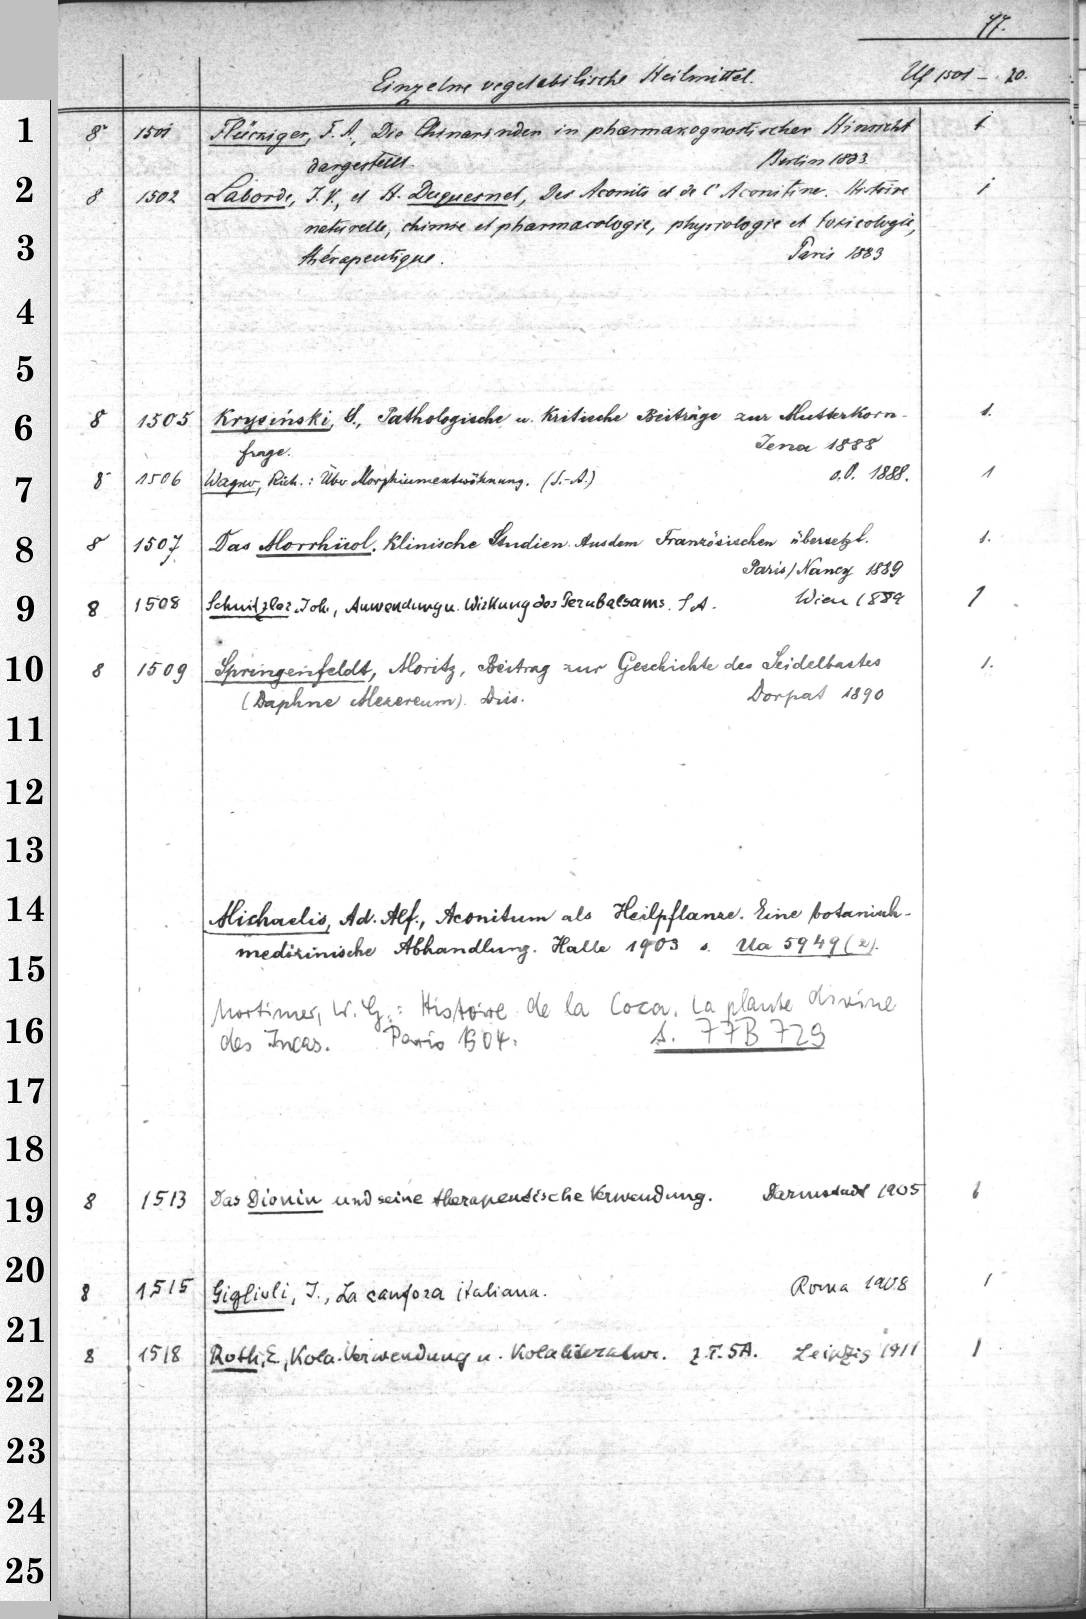 77.
Einzelne vegetabilische Heilmittel. Uf 1501 – 20.
1 8 1501 Flückiger, F. A., Die Chinarinden in pharmakognostischer Hinsicht 1
dargestellt. Berlin 1883
2 8 1502 Laborde, J. V., et H. Duquesnel, Des Aconits et de l'Aconitine. Histoire 1
naturelle, chimie et pharmacologie, physiologie et toxicologie,
3 thérapeutique. Paris 1883
4
5
6 8 1505 Krysiński, S., Pathologische u. Kritische Beiträge zur Mutterkorn- 1.
frage. Jena 1888
7 8 1506 Wagner, Rich.: Über Morphiumentwöhnung. (S.-A.) o.O. 1888. 1
8 8 1507 Das Morrhuol. Klinische Studien. Aus dem Französischen übersetzt. 1.
Paris/Nancy 1889
9 8 1508 Schnitzler, Joh., Anwendung u. Wirkung des Perubalsams. SA. Wien 1889 1
10 8 1509 Springenfeldt, Moritz, Beitrag zur Geschichte des Seidelbastes 1.
(Daphne Mezereum). Diss. Dorpat 1890
11
12
13
14 Michaelis, Ad. Alf., Aconitum als Heilpflanze. Eine botanisch-
15 medizinische Abhandlung. Halle 1903 s. Ua 5949 (2).
Mortimer, W. G.: Histoire de la Coca. La plante divine
16 des Incas. Paris 1904. s. 77B 729
17
18
19 8 1513 Das Dionin und seine therapeutische Verwendung. Darmstadt 1905 1
20
8 1515 Giglioli, I., La canfora italiana. Roma 1908 1
21
8 1518 Roth, E., Kola-Verwendung u. Kolaliteratur. z.T. SA. Leipzig 1911 1
22
23
24
25